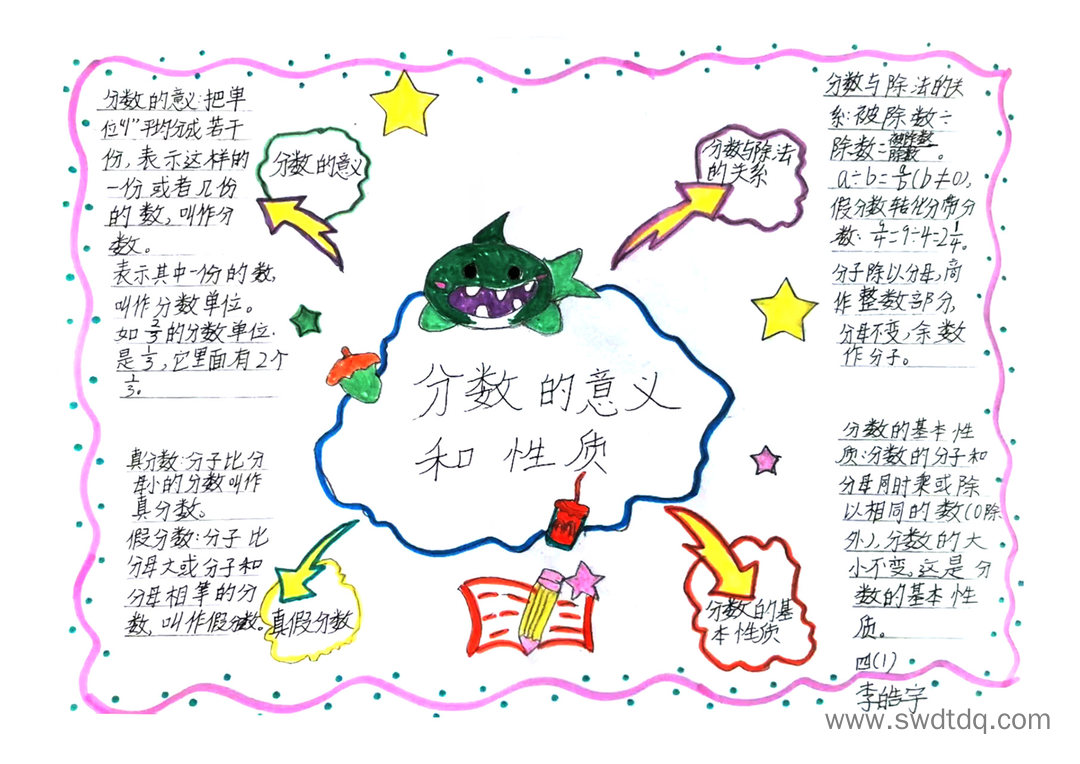 分数的意义:把单
位“1”平均分成若干
份,表示这样的
一份或者几份
的数,叫作分
数。
表示其中一份的数,
叫作分数单位。
如2/3的分数单位
是1/3,它里面有2个
1/3。
分数的意义
分数与除法
的关系
分数与除法的关
系:被除数÷
除数=被除数/除数。
a÷b=a/b(b≠0),
假分数转化分带分
数:9/4=9÷4=2 1/4。
分子除以分母,商
作整数部分,
分母不变,余数
作分子。
分数的意义
和性质
真分数:分子比分
母小的分数叫作
真分数。
假分数:分子比
分母大或分子和
分母相等的分
数,叫作假分数。
真假分数
分数的基
本性质
分数的基本性
质:分数的分子和
分母同时乘或除
以相同的数(0除
外),分数的大
小不变,这是分
数的基本性
质。
四(1)
李皓宇
www.swdtdq.com